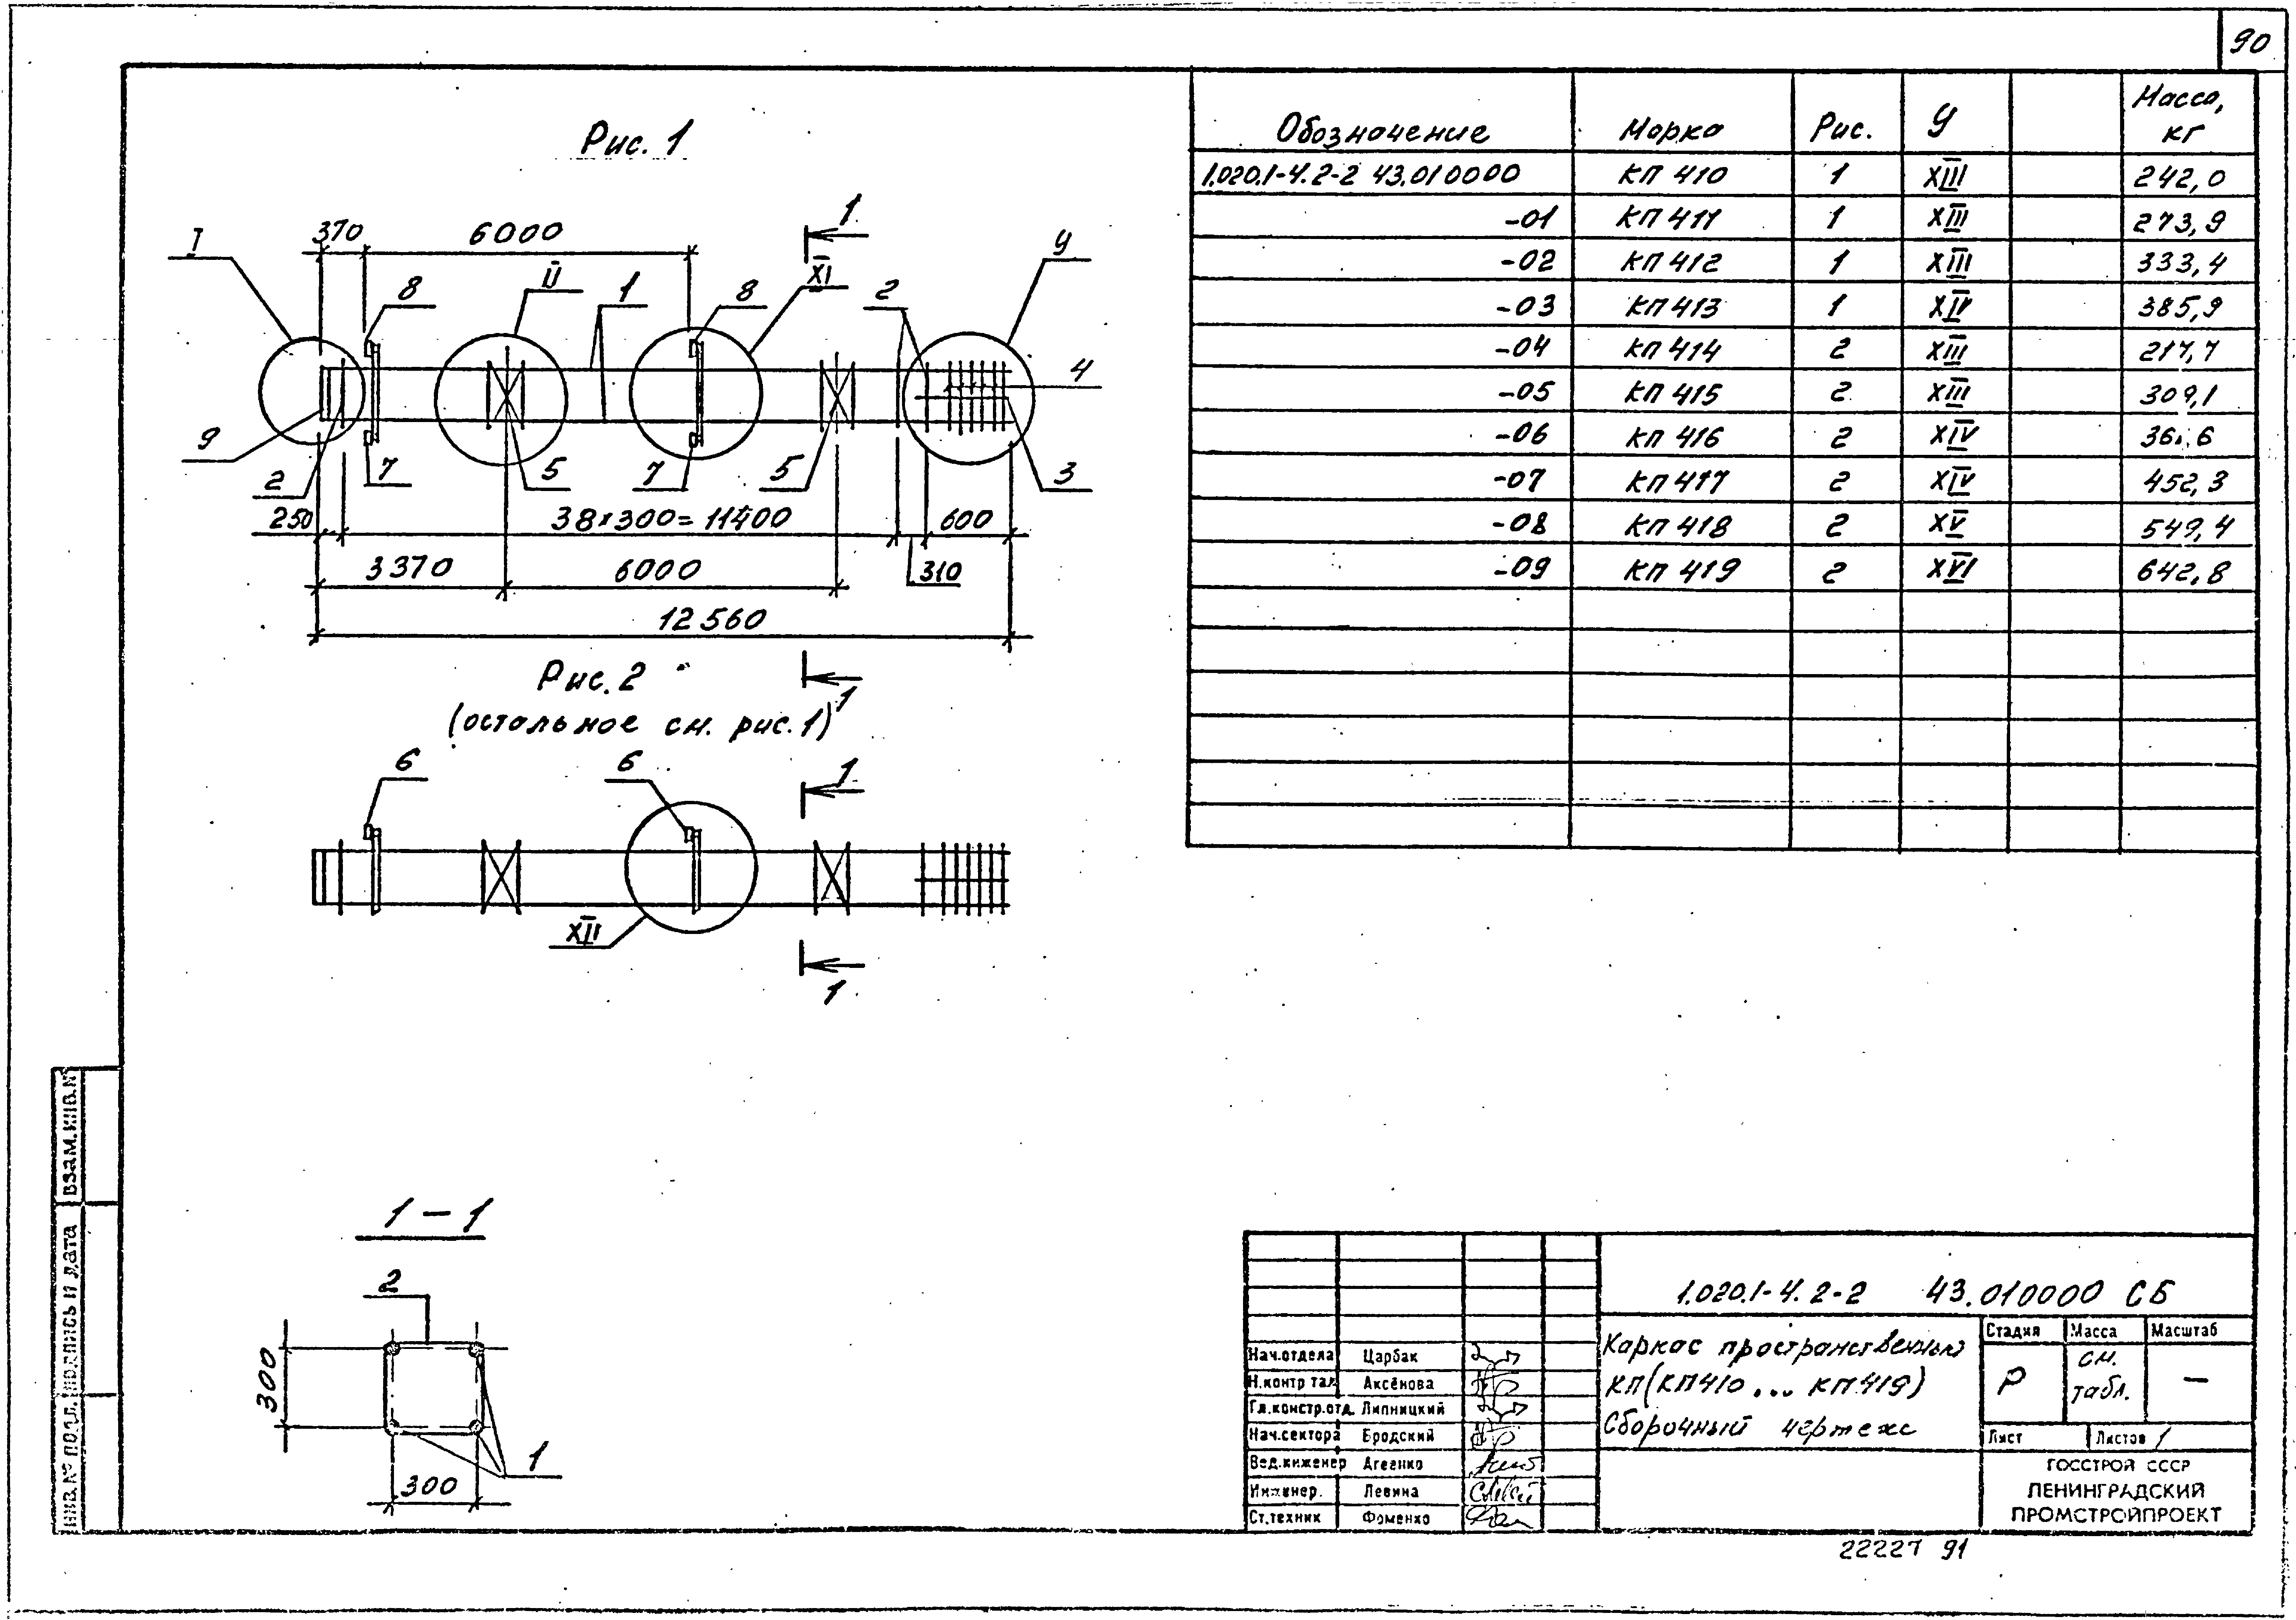 90
Рис. 1
370
6000
1
I
8
II
1
8
XI
2
У
4
9
2
7
5
7
5
3
250
38×300=11400
600
3370
6000
310
12560
Рис. 2
1
(остальное см. рис. 1)
6
6
1
XII
1
1-1
2
300
300
1
Обозначение Марка Рис. У Масса, кг
1.020.1-4.2-2 43.010000 КП 410 1 XIII 242,0
-01 КП 411 1 XIII 273,9
-02 КП 412 1 XIII 333,4
-03 КП 413 1 XIV 385,9
-04 КП 414 2 XIII 217,7
-05 КП 415 2 XIII 309,1
-06 КП 416 2 XIV
-07 КП 417 2 XIV 452,3
-08 КП 418 2 XV 549,4
-09 КП 419 2 XVI 642,8
Инв.№ подл. Подпись и дата Взам.инв.№
1.020.1-4.2-2 43.010000 СБ
Нач.отдела Царбак
Н.контр Аксёнова
Гл.констр.отд. Липницкий
Нач.сектора Бродский
Вед.инженер Агеенко
Инженер. Левина
Ст.техник Фоменко
Каркас пространственный
КП(КП410... КП419)
Сборочный чертеж
Стадия Масса Масштаб
Р см. табл. —
Лист Листов 1
ГОССТРОЙ СССР
ЛЕНИНГРАДСКИЙ
ПРОМСТРОЙПРОЕКТ
22227 91